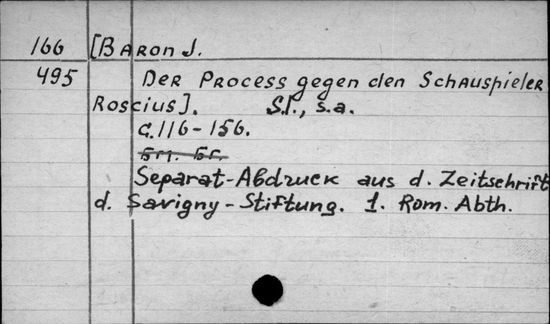 166 [Baron J.
495 Der Process gegen den Schauspieler
Roscius]. S.l., s.a.
C.116-156.
Бт. бг.
Separat-Abdruck aus d. Zeitschrift
d. Savigny-Stiftung. 1. Rom. Abth.